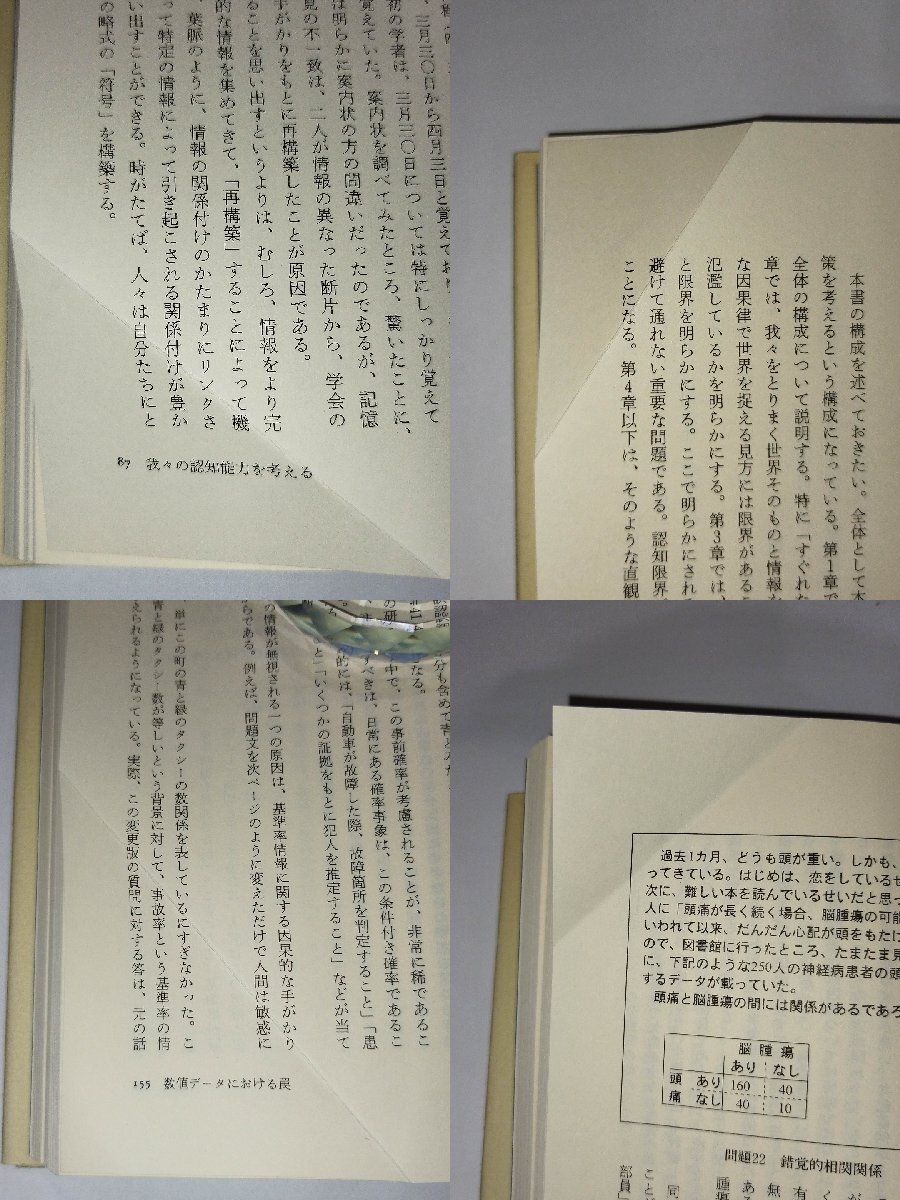 、三月三〇日から四月三日と覚えており
初の学者は、三月三〇日については特にしっかり覚えて
覚えていた。案内状を調べてみたところ、驚いたことに、
は明らかに案内状の方の間違いだったのであるが、記憶
見の不一致は、二人が情報の異なった断片から、学会の
手がかりをもとに再構築したことが原因である。
ることを思い出すというよりは、むしろ、情報をより完
的な情報を集めてきて、「再構築」することによって機
、葉脈のように、情報の関係付けのかたまりにリンクさ
って特定の情報によって引き起こされる関係付けが豊か
い出すことができる。時がたてば、人々は自分たちにと
の略式の「符号」を構築する。
87 我々の認知能力を考える
本書の構成を述べておきたい。全体として本
策を考えるという構成になっている。第1章で
全体の構成について説明する。特に「すぐれた
章では、我々をとりまく世界そのものと情報な
な因果律で世界を捉える見方には限界があるこ
氾濫しているかを明らかにする。第3章では、
と限界を明らかにする。ここで明らかにされ
避けて通れない重要な問題である。認知限界
ことになる。第4章以下は、そのような直観
分も含めて青と
なる。
中で、この事前確率が考慮されることが、非常に稀であるこ
すべきは、日常にある確率事象は、この条件付き確率であるこ
的には、「自動車が故障した際、故障箇所を判定すること」「患
と」「いくつかの証拠をもとに犯人を推定すること」などが当て
の情報が無視される一つの原因は、基準率情報に関する因果的な手がかり
からである。例えば、問題文を次ページのように変えただけで人間は敏感に
単にこの町の青と緑のタクシーの数関係を表しているにすぎなかった。こ
青と緑のタクシー数が等しいという背景に対して、事故率という基準率の情
えられるようになっている。実際、この変更版の質問に対する答は、元の話
155 数値データにおける罠
過去1カ月、どうも頭が重い。しかも、
ってきている。はじめは、恋をしているせ
次に、難しい本を読んでいるせいだと思っ
人に「頭痛が長く続く場合、脳腫瘍の可能
いわれて以来、だんだん心配が頭をもたけ
ので、図書館に行ったところ、たまたま見
に、下記のような250人の神経病患者の頭
するデータが載っていた。
頭痛と脳腫瘍の間には関係があるであろ
脳腫瘍
あり なし
頭 あり 160 40
痛 なし 40 10
問題22 錯覚的相関関係